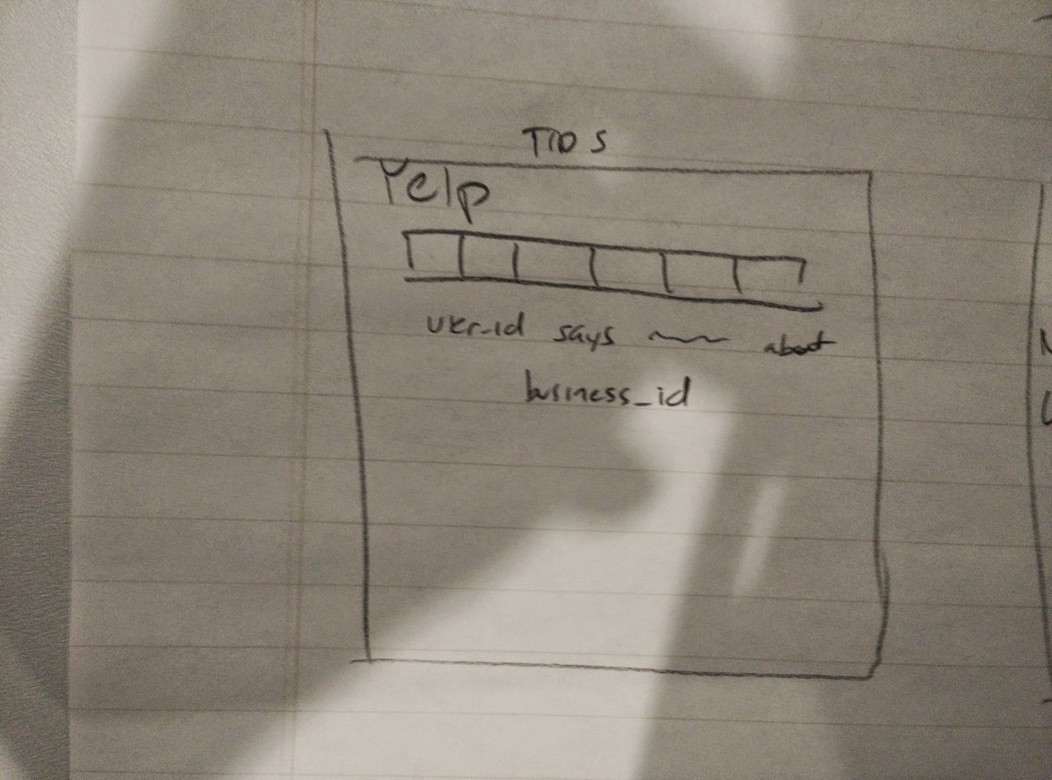 TIPS
Yelp
user_id says about
business_id